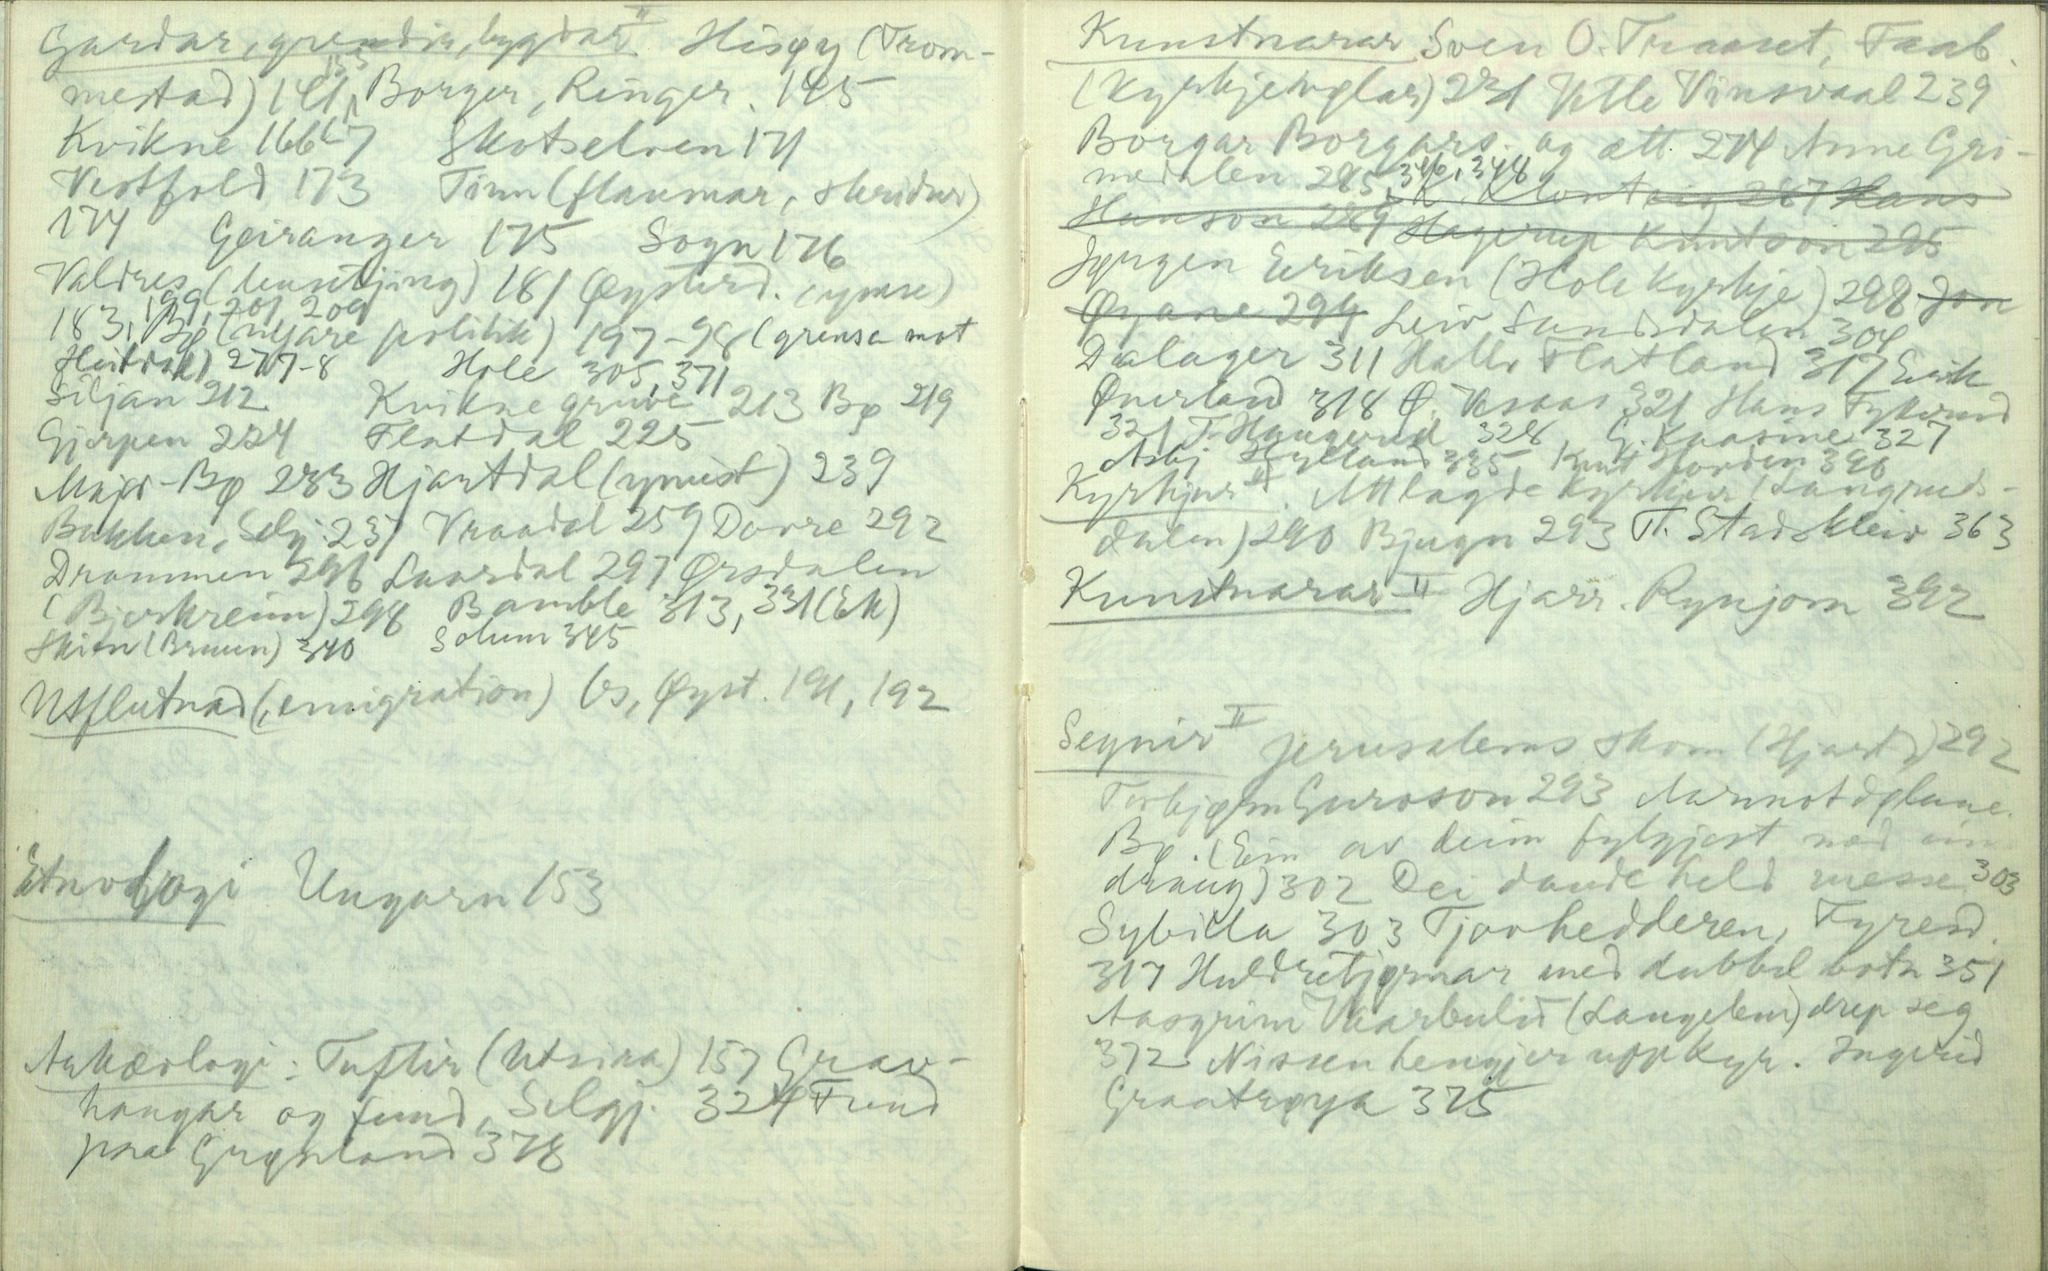 Gardar, grendir, bygdar II Hisøy (Trom-
mestad) 141, 155 Borger, Ringer. 145
Kvikne 166-7 Skotselven 171
Vestfold 173 Tinn (flaumar, skridur)
174 Geiranger 175 Sogn 176
Valdres 181 Øysterd. (ymse)
183, 199, 201, 209
Bø (nyare politik) 197-98 (grensa mot
Heitrdal) 277-8 Hole 305, 371
Siljan 212 Kvikne gruve 213 Bø 219
Gjerpen 224 Flatdal 225
Bø 233 Hjartdal (ymist) 239
Bakken, Selj. 237 Vraadal 259 Dovre 292
Drammen 296 Laardal 297 Ørsdalen
(Bjerkreim) 298 Bamble 313, 331 (Ek)
Skien (Bruun) 340 Solum 345
Utflutnad (emigration) Øyst. 191, 192
Etnologi Ungarn 153
Arkæologi: Tuftir (Utsira) 157 Grav-
haugar og fund, Selgj. 324 Fund
paa Grønland 378
Kunstnarar Sven O. Traaset, Faab.
(Kyrkjemølar) 231 Vetle Vinsvaal 239
Borgar Borgars. og ætt 274 Anne Gri-
medalen 285, 346, 348 K. 287 Hans
Hanson 289 Hagerup Knutson 295
Jørgen Eriksen (Hole Kyrkje) 298 Jon
Øyane 299 Leiv Sundsdalen 304
Dalager 311 Halv Flatland 317 Eirik
Øverland 318 Ø. Vesaas 321 Hans Fykerud
321 T. Haugerud 328, G. Kaasine 327
Asbj. Hylland 335, Knut Hovden 396
Kyrkjur II. Attlagde Kyrkjur (Langruds-
dalen) 290 Bjugn 293 T. Stadskleiv 363
Kunstnarar II Hjarr. Rynjom 392
Segnir II Jerusalems skom (Hjartd.) 292
Torbjørn Guroson 293
Bø. (Ein av deim fylgjest med ein
draug) 302 Dei daude held messe 303
Sybilla 303 Tjovhedderen, Fyresd.
317 Huldretjørnar med dubbel botn 351
Aasgrim Vaarbulid (Langelem) drep seg
372 Nissen hengjer upp Kyr. Ingerid
Graatrøya 375